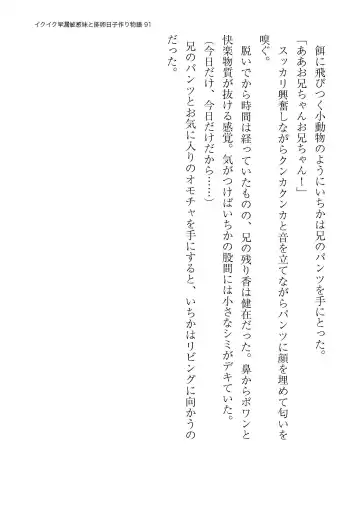 イクイク早漏敏感妹と排卵日子作り物語 91
餌に飛びつく小動物のようにいちかは兄のパンツを手にとった。
「ああお兄ちゃんお兄ちゃん！」
スッカリ興奮しながらクンカクンカと音を立てながらパンツに顔を埋めて匂いを
嗅ぐ。
脱いでから時間は経っていたものの、兄の残り香は健在だった。鼻からボワンと
快楽物質が抜ける感覚。気がつけばいちかの股間には小さなシミがデキていた。
（今日だけ、今日だけだから……）
兄のパンツとお気に入りのオモチャを手にすると、いちかはリビングに向かうの
だった。